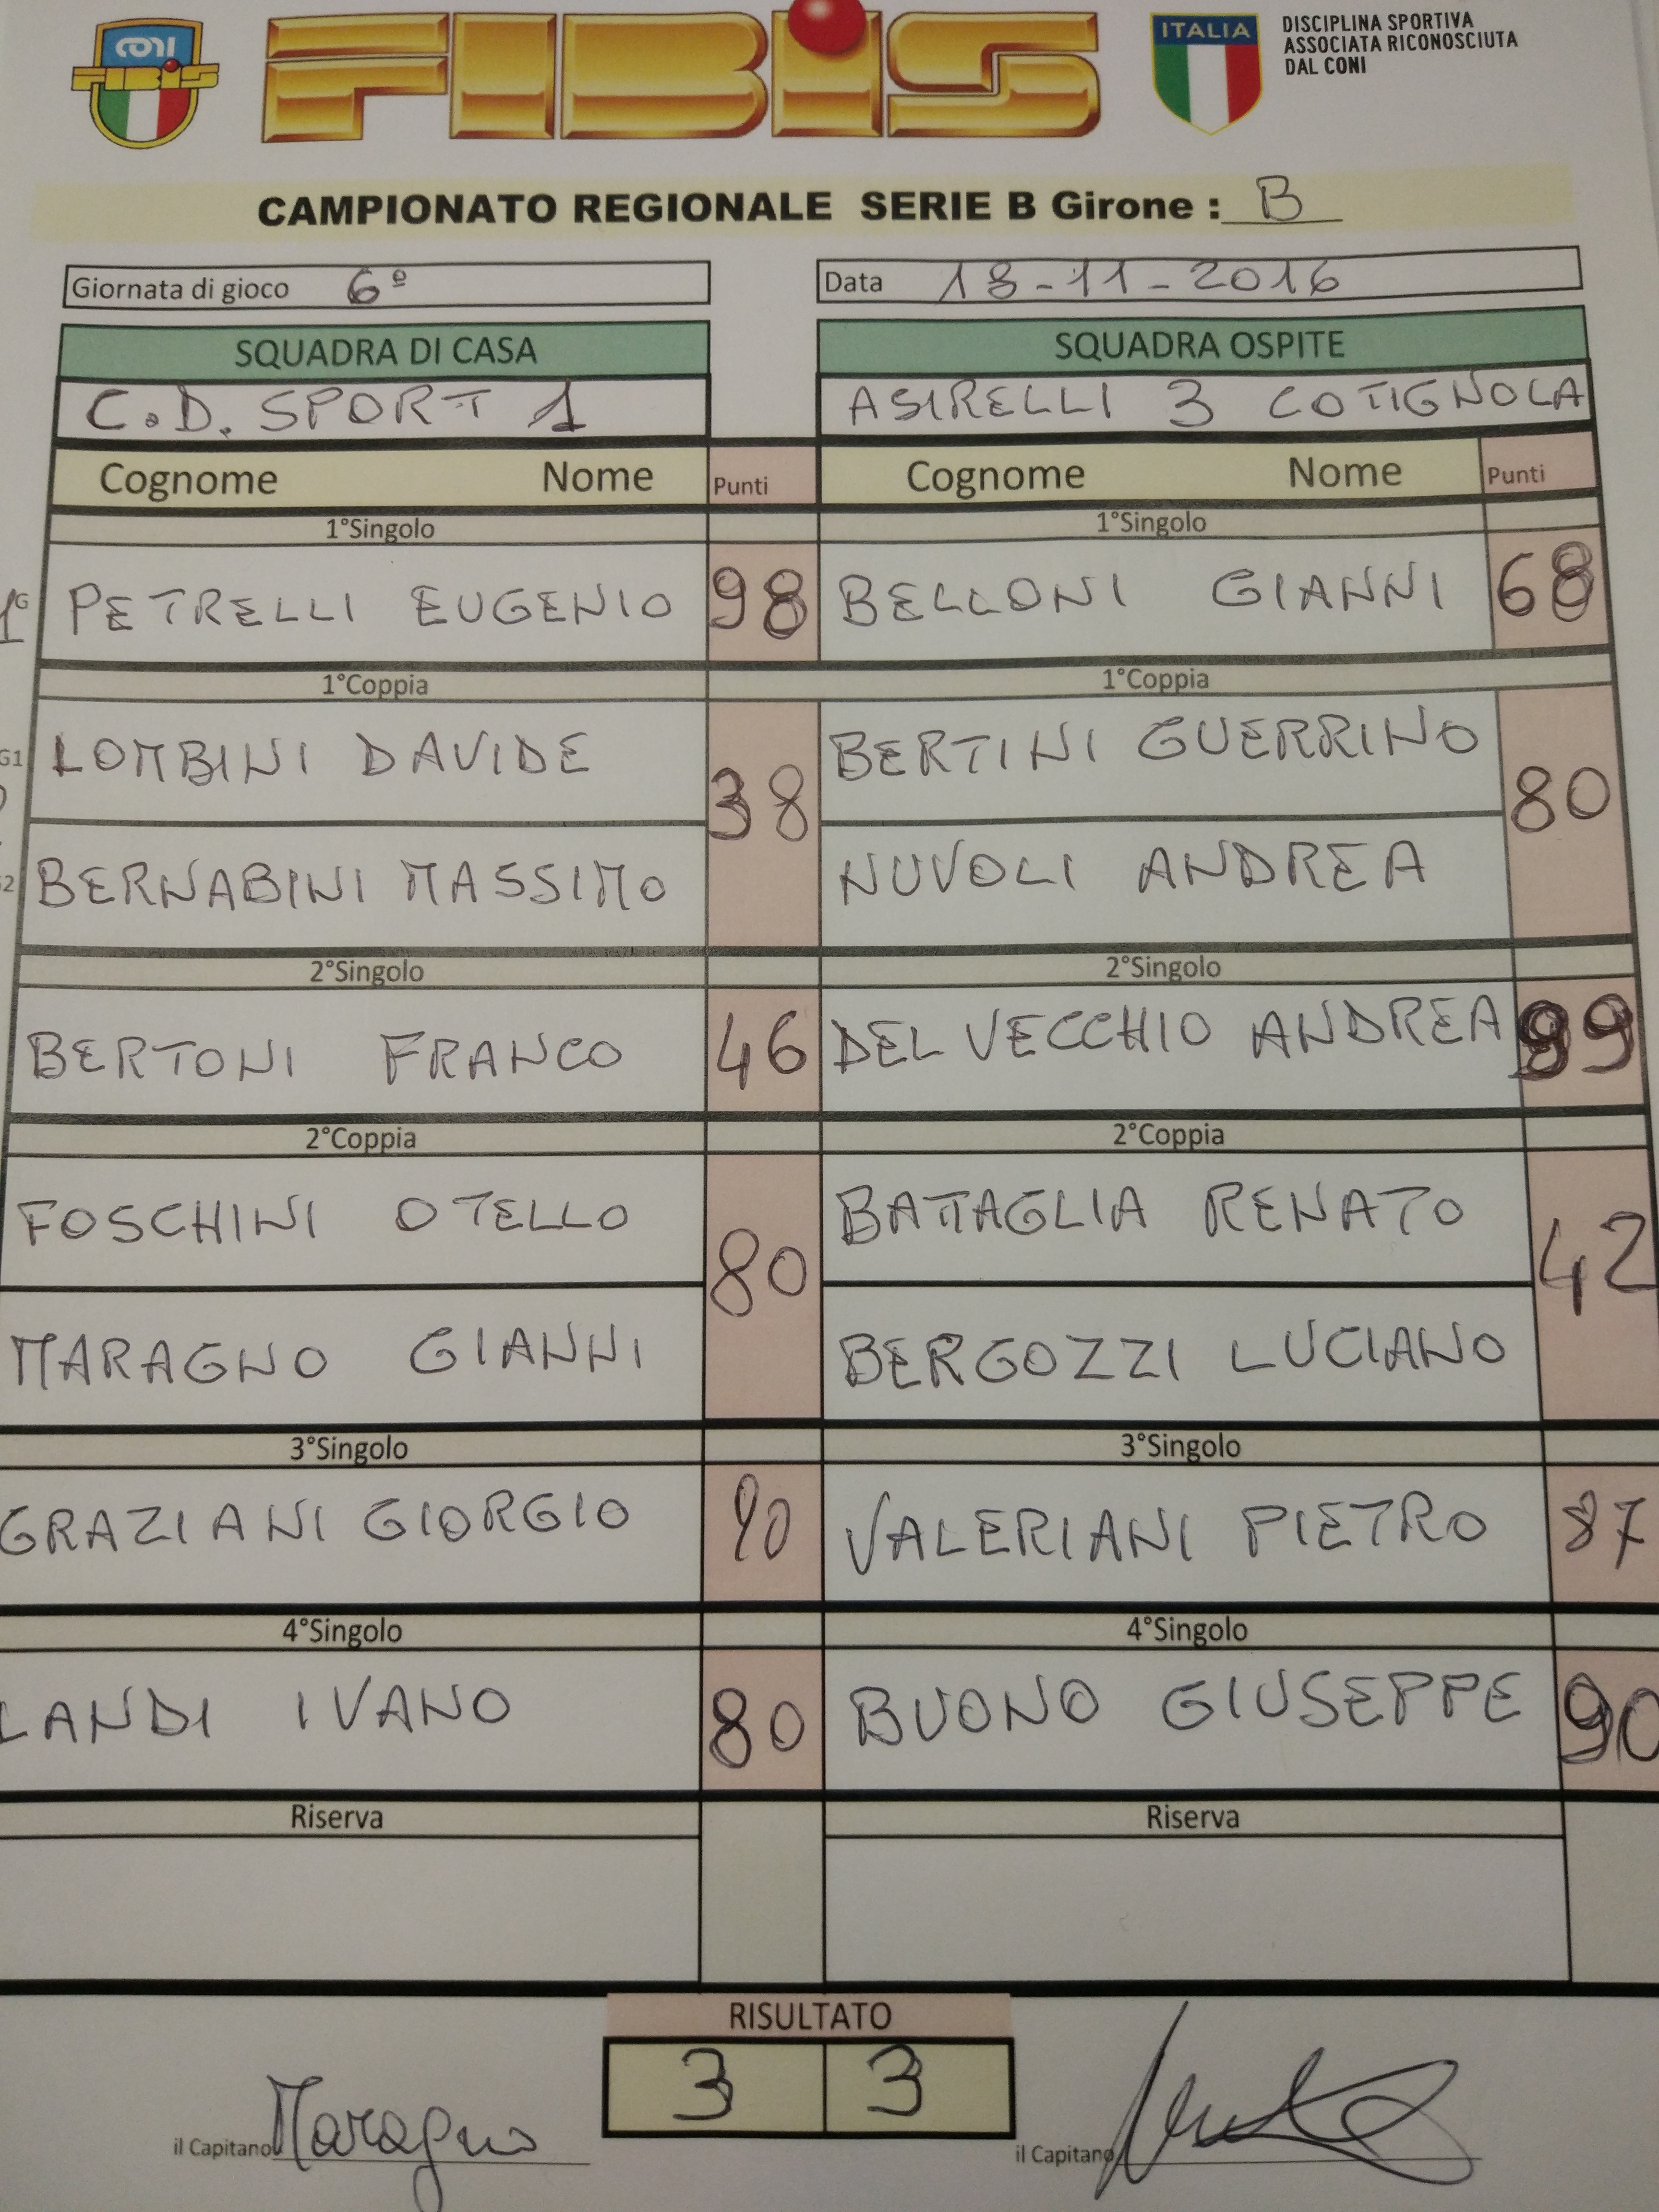 CONI
FIBIS
FIBIS
ITALIA
DISCIPLINA SPORTIVA
ASSOCIATA RICONOSCIUTA
DAL CONI
CAMPIONATO REGIONALE SERIE B Girone : B
Giornata di gioco 6º
Data 18-11-2016
SQUADRA DI CASA
SQUADRA OSPITE
C.D. SPORT 1
ASIRELLI 3 COTIGNOLA
Cognome Nome Punti Cognome Nome Punti
1°Singolo 1°Singolo
PETRELLI EUGENIO 98 BELLONI GIANNI 68
1°Coppia 1°Coppia
LOMBINI DAVIDE BERTINI GUERRINO
38 80
BERNABINI MASSIMO NUVOLI ANDREA
2°Singolo 2°Singolo
BERTONI FRANCO 46 DEL VECCHIO ANDREA 99
2°Coppia 2°Coppia
FOSCHINI OTELLO BATTAGLIA RENATO
80 42
MARAGNO GIANNI BERGOZZI LUCIANO
3°Singolo 3°Singolo
GRAZIANI GIORGIO 90 VALERIANI PIETRO 87
4°Singolo 4°Singolo
LANDI IVANO 80 BUONO GIUSEPPE 90
Riserva Riserva
RISULTATO
3 3
il Capitano Maragno
il Capitano